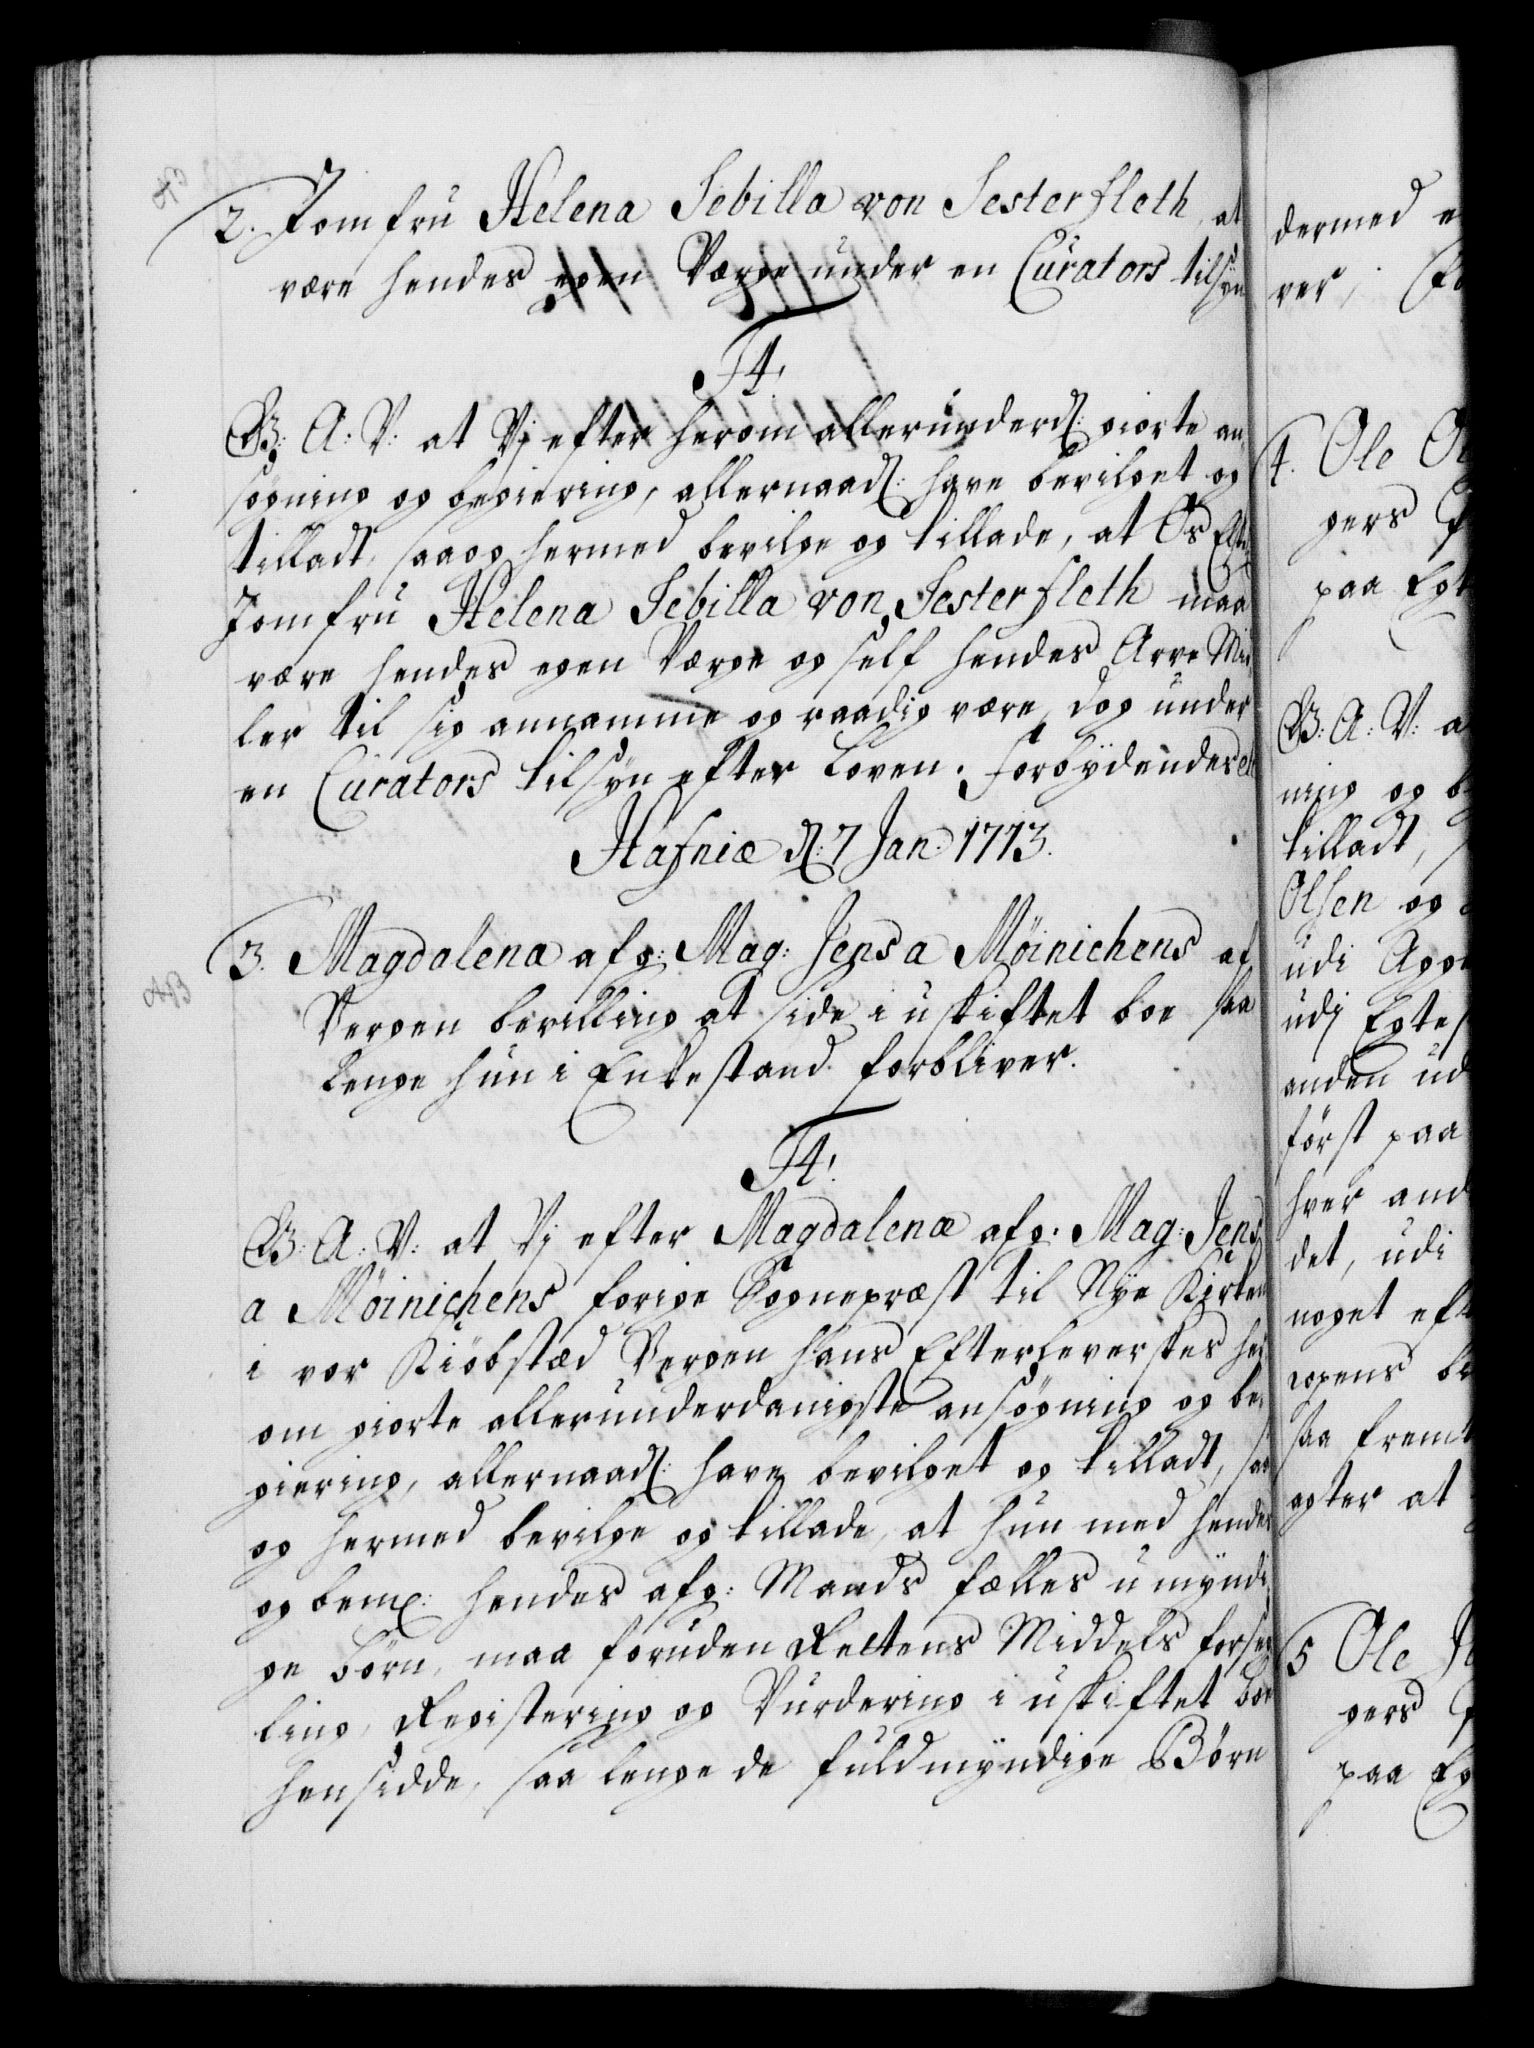 2. Jomfru Helena Sebilla von Sesterfleth, at
være hendes egen Værge under en Curators tilsyn
F4.
G: A: V: at Vj efter herom allerunderd: giorte an,
søgning og begiering, allernaad: have bevilget og
tilladt, saa og hermed bevilge og tillade, at Os Elste
Jomfru Helena Sebilla von Sesterfleth maa
være hendes egen Værge og self hendes Arve Mid,
ler til sig annamme og raadig være, dog under
en Curators tilsyn efter Loven. Forbydendes etc
Hafniæ d: 7 Jan: 1713.
3. Magdalena afg: Mag: Jens a Möinichens af
Bergen bevilling at side i uskiftet boe saa
lenge hun i Enkestand forbliver.
F4.
G: A: V: at Vj efter Magdalenæ afg: Mag: Jens
a Möinichens forige Sognepræst til Nye Kirken
i vor Kiöbstæd Bergen Hans Efterleverskes her,
om giorte allerunderdanigste ansøgning og be,
giering, allernaad: have bevilget og tilladt, saa
og hermed bevilge og tillade, at hun med hendes
og bem: hendes afg: Mands fælles umyndi,
ge børn, maa foruden Rettens Middels forseg,
ling, Registering og Vurdering i uskiftet boe
hensidde, saa lenge de fuldmyndige Børn
dermed e
ver,
4. Ole O
gers
paa Egt
G: A: V: a
ning og b
tilladt,
Olsen og
udi
udj Egtes
anden ud
først paa
hver and
det, udi
noget eft
saa fremt
agter at
5 Ole J
gers
paa Eg